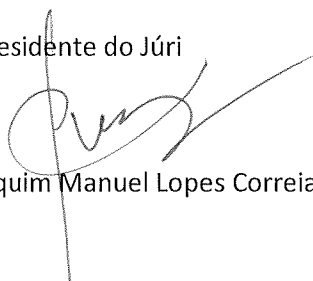 esidente do Júri
quim Manuel Lopes Correia